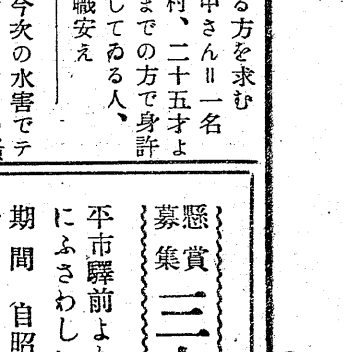 る方を求む
中さん＝一名
村、二十五才よ
までの方で身許
してゐる人、
職安え
今次の水害でテ
懸賞
募集
平市驛前よ
にふさわし
期間 自昭